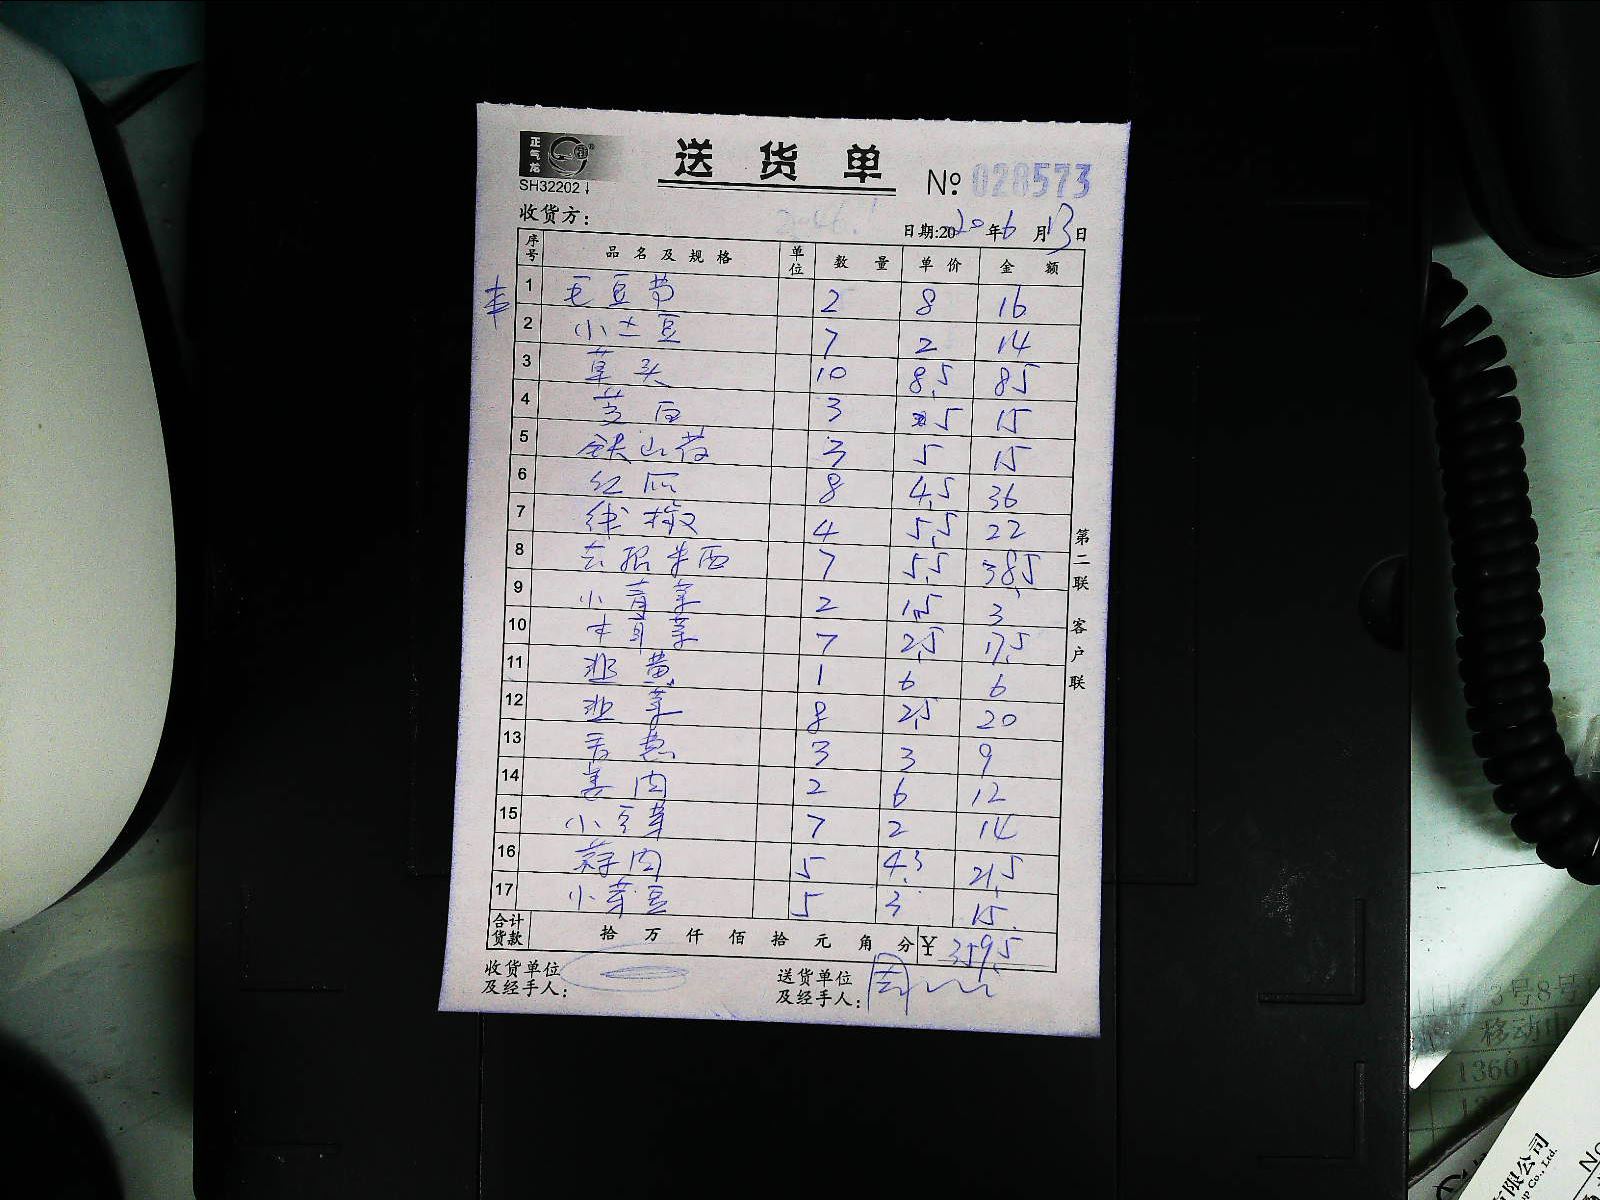 正气龙
SH32202
送货单
№ 028573
收货方:
日期:2020年6月13日
序号 品名及规格 单位 数量 单价 金额
1 毛豆节 2 8 16
2 小土豆 7 2 14
3 草头 10 8.5 85
4 茭白 3 5 15
5 铁山药 3 5 15
6 红 8 4.5 36
7 线椒 4 5.5 22
8 去根米西 7 5.5 38.5
9 小青菜 2 1.5 3
10 木耳菜 7 2.5 17.5
11 韭黄 1 6 6
12 韭菜 8 2.5 20
13 香葱 3 3 9
14 姜肉 2 6 12
15 小豆芽 7 2 14
16 蒜肉 5 4.3 21.5
17 小芽豆 5 3 15
合计货款 拾 万 仟 佰 拾 元 角 分 ¥ 359.5
收货单位及经手人:
送货单位及经手人:
第二联 客户联
3号8号
移动
1360
有限公司
Co., Ltd.
No